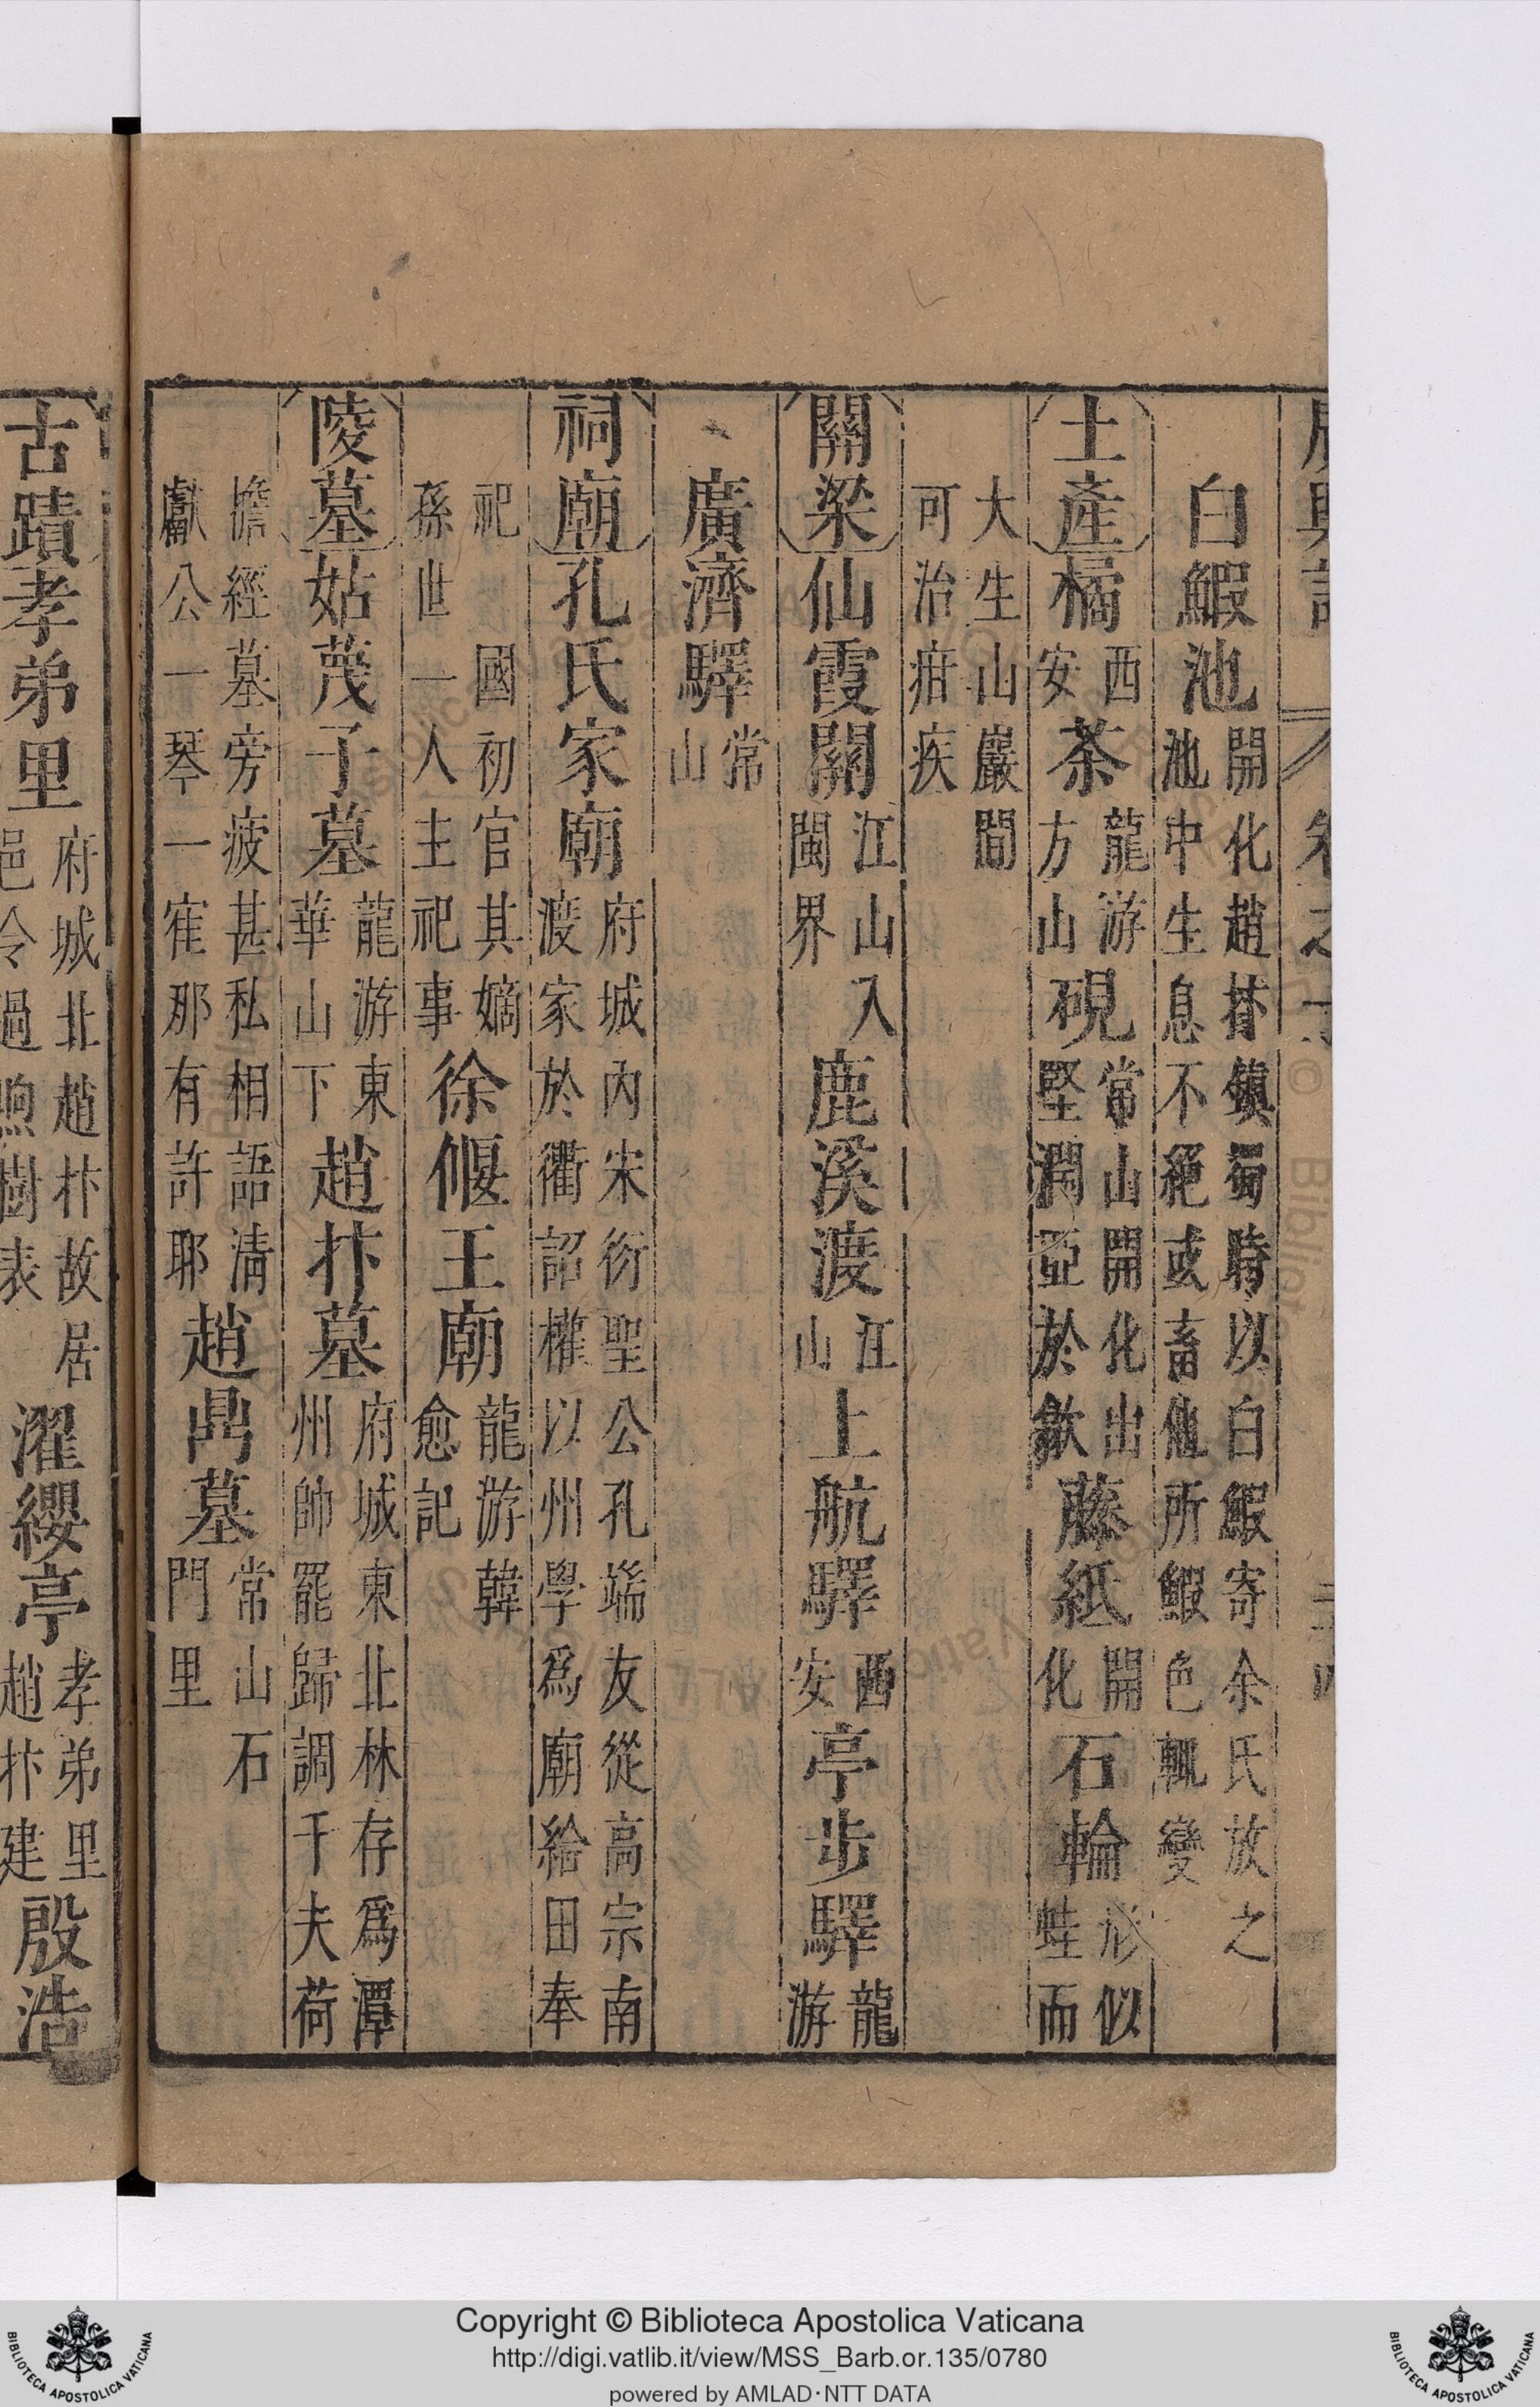 廣輿記 卷之
白鰕池 開化趙抃鎮蜀時以白鰕寄余氏放之池中生息不絕或畜他所鰕色輒變
土產 橘 西安 茶 龍游方山 硯 常山開化出堅潤亞於歙 藤紙 開化 石輪 形似蛙而
大生山巖間可治疳疾
關梁 仙霞關 江山入閩界 鹿溪渡 江山 上航驛 西安 亭步驛 龍游
廣濟驛 常山
祠廟 孔氏家廟 府城內宋衍聖公孔端友從高宗南渡家於衢詔權以州學為廟給田奉
祀 國初官其嫡孫世一人主祀事 徐偃王廟 龍游韓愈記
陵墓 姑蔑子墓 龍游東華山下 趙抃墓 府城東北林存為潭州帥罷歸調千夫荷
擔經墓旁疲甚私相語清獻公一琴一寉那有許耶 趙鼎墓 常山石門里
古蹟 孝弟里 府城北趙抃故居邑令過煦樹表 濯纓亭 孝弟里趙抃建 殷浩
Copyright © Biblioteca Apostolica Vaticana
http://digi.vatlib.it/view/MSS_Barb.or.135/0780
powered by AMLAD·NTT DATA
BIBLIOTECA APOSTOLICA VATICANA
BIBLIOTECA APOSTOLICA VATICANA